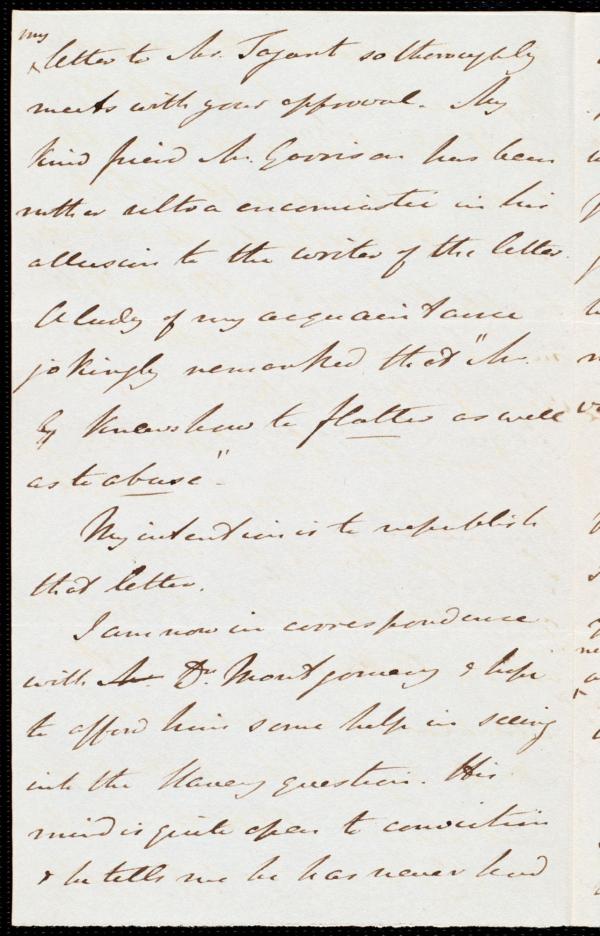 my
letter to Mr. Tagart so thoroughly
meets with your approval. My
kind friend Mr. Garrison has been
rather ultra encomiastic in his
allusion to the writer of the letter.
A lady of my acquaintance
jokingly remarked that "Mr.
G knows how to flatter as well
as to abuse".
My intention is to republish
that letter.
I am now in correspondence
with Mr Dr. Montgomery & hope
to afford him some help in seeing
into the Slavery question. His
mind is quite open to conviction
& he tells me he has never had